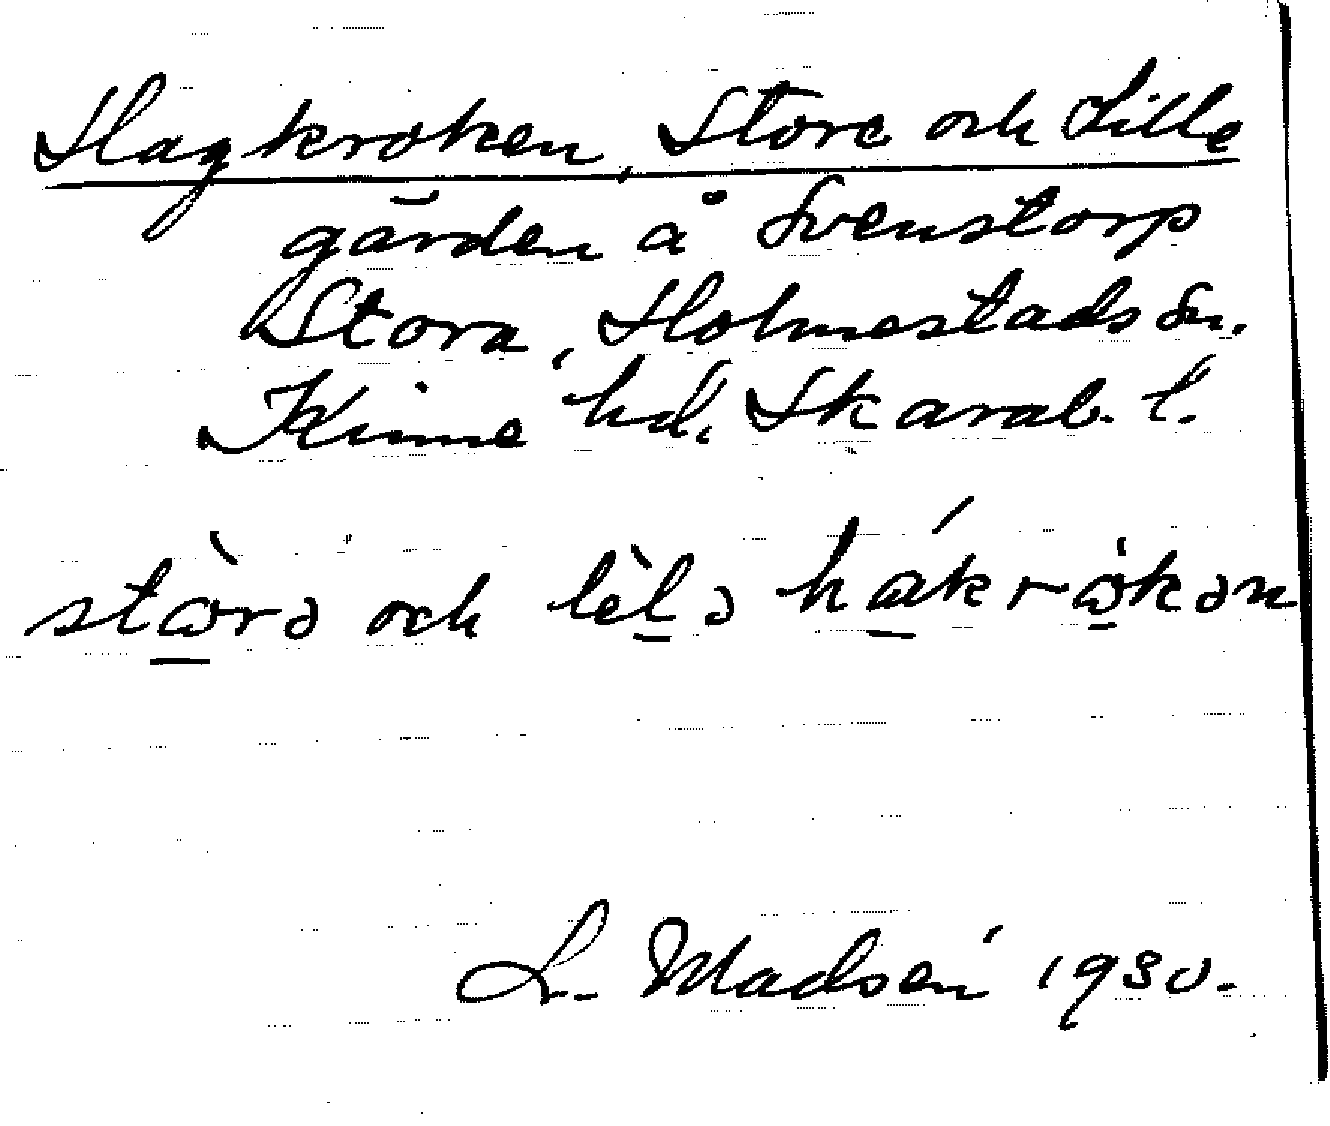 Hagkroken, Store och Lille
gärden å Svenstorp
Stora, Holmestads sn.
Kinne hd, Skarab. l.
stòrə och lèlə hákrȯkən
L. Madsén 1930.